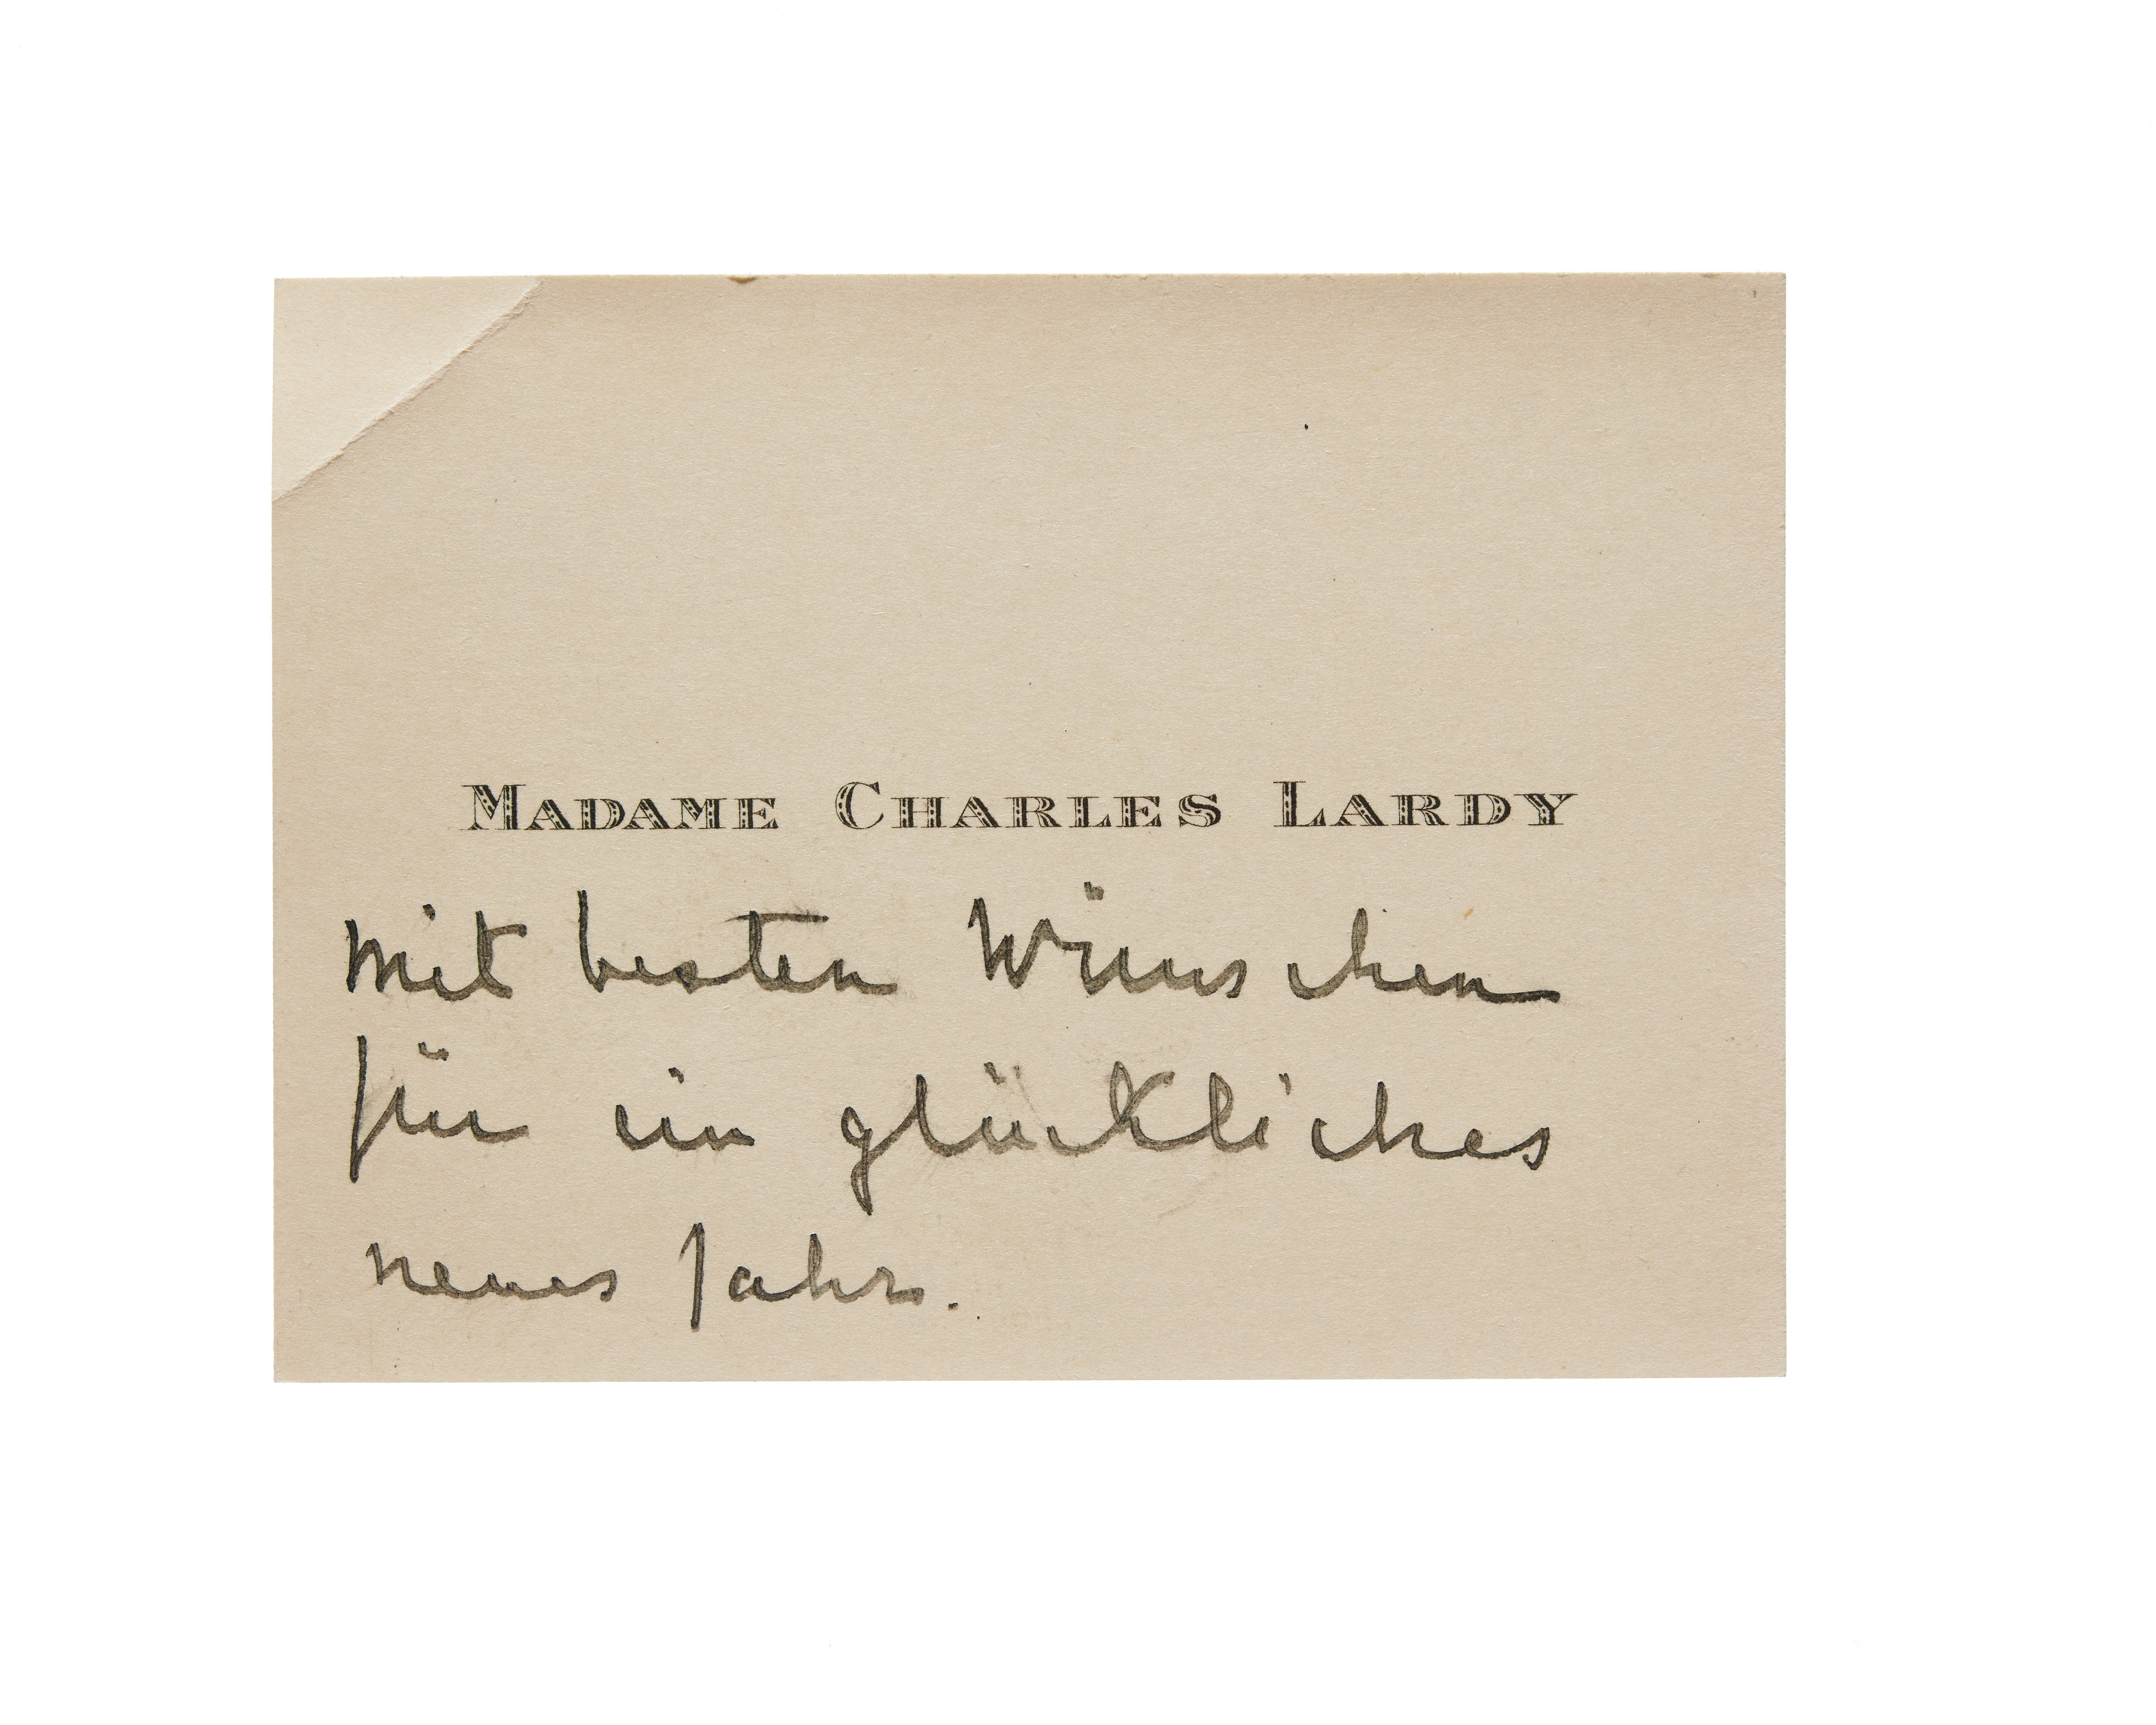 MADAME CHARLES LARDY
Mit besten Wünschen
für ein glückliches
neues Jahr.